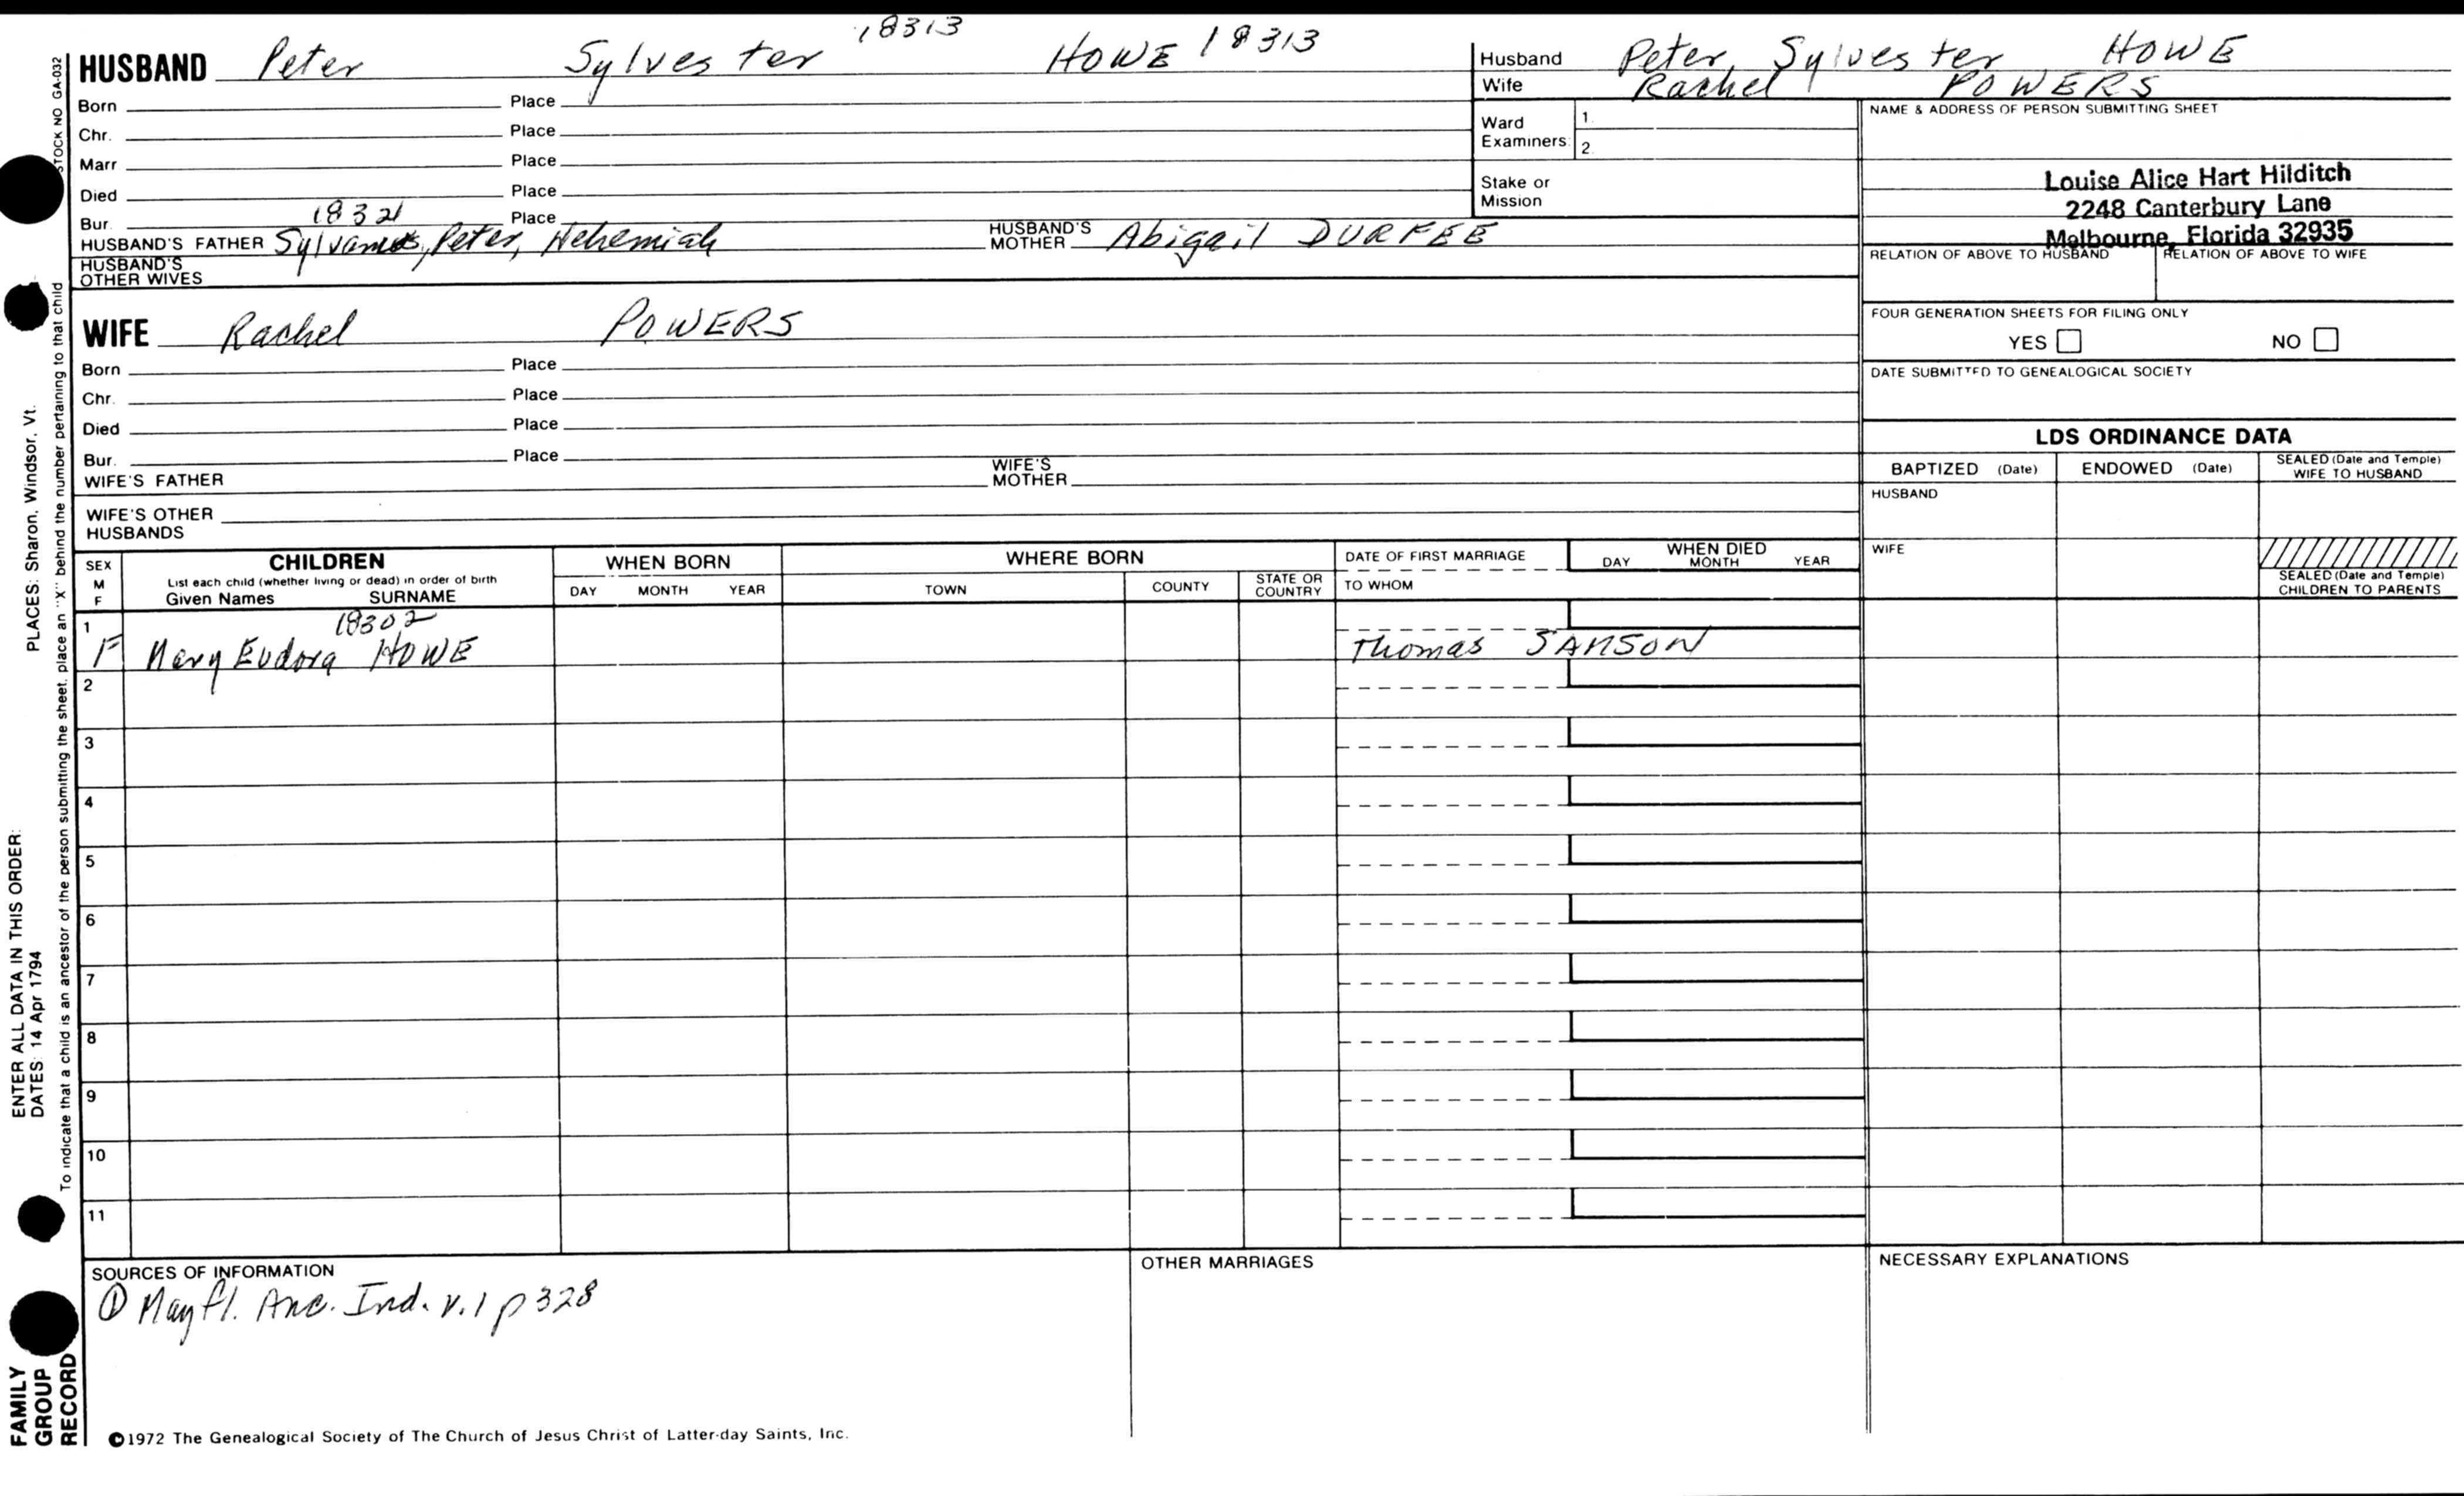 18313
HUSBAND Peter Sylvester HOWE 18313
Born Place
Chr. Place
Marr Place
Died Place
Bur. Place
18321
HUSBAND'S FATHER Sylvanus, Peter, Nehemiah HUSBAND'S MOTHER Abigail DURFEE
HUSBAND'S OTHER WIVES
Husband Peter Sylvester HOWE
Wife Rachel POWERS
Ward Examiners: 1.
2.
Stake or Mission
NAME & ADDRESS OF PERSON SUBMITTING SHEET
Louise Alice Hart Hilditch
2248 Canterbury Lane
Melbourne, Florida 32935
RELATION OF ABOVE TO HUSBAND RELATION OF ABOVE TO WIFE
FOUR GENERATION SHEETS FOR FILING ONLY
YES NO
DATE SUBMITTED TO GENEALOGICAL SOCIETY
WIFE Rachel POWERS
Born Place
Chr. Place
Died Place
Bur. Place
WIFE'S FATHER WIFE'S MOTHER
WIFE'S OTHER HUSBANDS
LDS ORDINANCE DATA
BAPTIZED (Date) ENDOWED (Date) SEALED (Date and Temple) WIFE TO HUSBAND
HUSBAND
WIFE
SEALED (Date and Temple) CHILDREN TO PARENTS
SEX M F
CHILDREN
List each child (whether living or dead) in order of birth
Given Names SURNAME
WHEN BORN
DAY MONTH YEAR
WHERE BORN
TOWN COUNTY STATE OR COUNTRY
DATE OF FIRST MARRIAGE
TO WHOM
WHEN DIED
DAY MONTH YEAR
18302
1 F Mary Eudora HOWE Thomas SAMSON
2
3
4
5
6
7
8
9
10
11
SOURCES OF INFORMATION
① Mayfl. Anc. Ind. v. 1 p 328
OTHER MARRIAGES
NECESSARY EXPLANATIONS
©1972 The Genealogical Society of The Church of Jesus Christ of Latter-day Saints, Inc.
STOCK NO GA-032
To indicate that a child is an ancestor of the person submitting the sheet, place an "X" behind the number pertaining to that child
ENTER ALL DATA IN THIS ORDER:
DATES: 14 Apr 1794
PLACES: Sharon, Windsor, Vt.
FAMILY
GROUP
RECORD